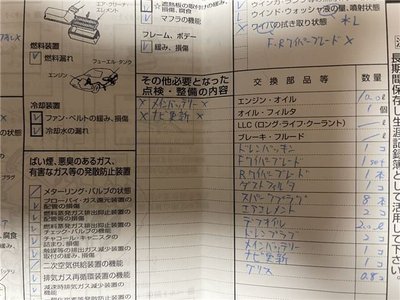 エア・クリーナ・エレメント
燃料装置
燃料漏れ
フューエル・タンク
エンジン
冷却装置
ファン・ベルトの緩み、損傷
冷却水の漏れ
ばい煙、悪臭のあるガス、有害なガス等の発散防止装置
メターリング・バルブの状態
ブローバイ・ガス還元装置の配管の損傷
燃料蒸発ガス排出抑止装置の配管等の損傷
燃料蒸発ガス排出抑止装置のチェック・バルブの機能
チャコール・キャニスタの詰まり、損傷
触媒等の排出ガス減少装置の取付けの緩み、損傷
二次空気供給装置の機能
排気ガス再循環装置の機能
減速時排気ガス減少装置の
遮熱板の取付けの緩み、損傷、腐食
マフラの機能
フレーム、ボデー
緩み、損傷
その他必要となった点検・整備の内容
メインバッテリー
ナビ更新
ウインド・ウォッシャ液の量、噴射状態
ワイパの拭き取り状態
F.Rワイパーブレード
交換部品等
数量
エンジン・オイル
オイル・フィルタ
1
LLC（ロング・ライフ・クーラント）
ブレーキ・フルード
ドレンパッキン
Fワイパーブレード
Rワイパーブレード
ダストフィルタ
スパークプラグ
エアエレメント
デフオイル
ドレンパッキン
メインバッテリー
ナビ更新
グリス
長期間保存し生涯記録簿として活用して下さい。